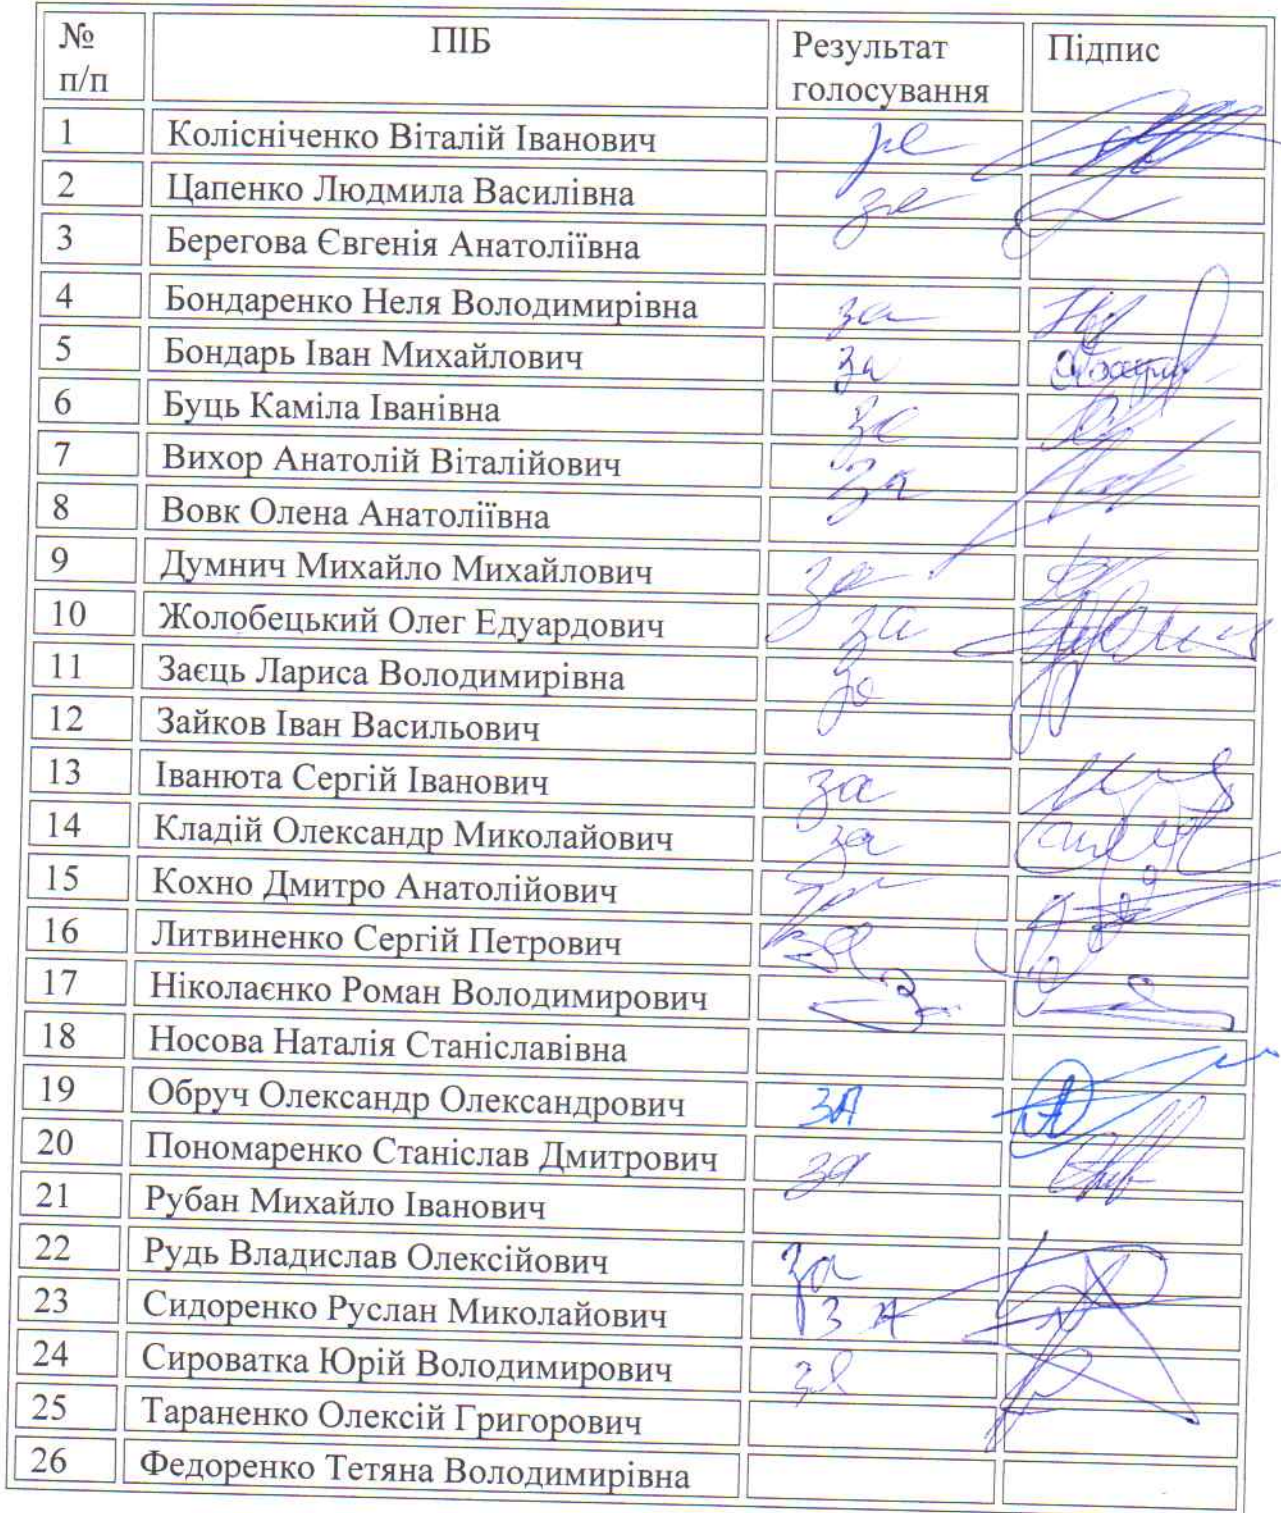 № п/п ПІБ Результат голосування Підпис
1 Колісніченко Віталій Іванович за
2 Цапенко Людмила Василівна за
3 Берегова Євгенія Анатоліївна
4 Бондаренко Неля Володимирівна за
5 Бондарь Іван Михайлович за
6 Буць Каміла Іванівна за
7 Вихор Анатолій Віталійович за
8 Вовк Олена Анатоліївна
9 Думнич Михайло Михайлович за
10 Жолобецький Олег Едуардович за
11 Заєць Лариса Володимирівна за
12 Зайков Іван Васильович
13 Іванюта Сергій Іванович за
14 Кладій Олександр Миколайович за
15 Кохно Дмитро Анатолійович
16 Литвиненко Сергій Петрович за
17 Ніколаєнко Роман Володимирович
18 Носова Наталія Станіславівна
19 Обруч Олександр Олександрович ЗА
20 Пономаренко Станіслав Дмитрович за
21 Рубан Михайло Іванович
22 Рудь Владислав Олексійович за
23 Сидоренко Руслан Миколайович за
24 Сироватка Юрій Володимирович за
25 Тараненко Олексій Григорович
26 Федоренко Тетяна Володимирівна